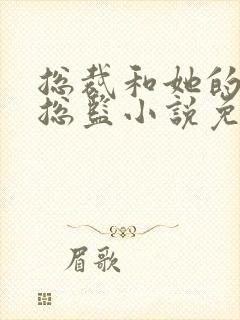 总裁和她的
总监小说免
眉歌